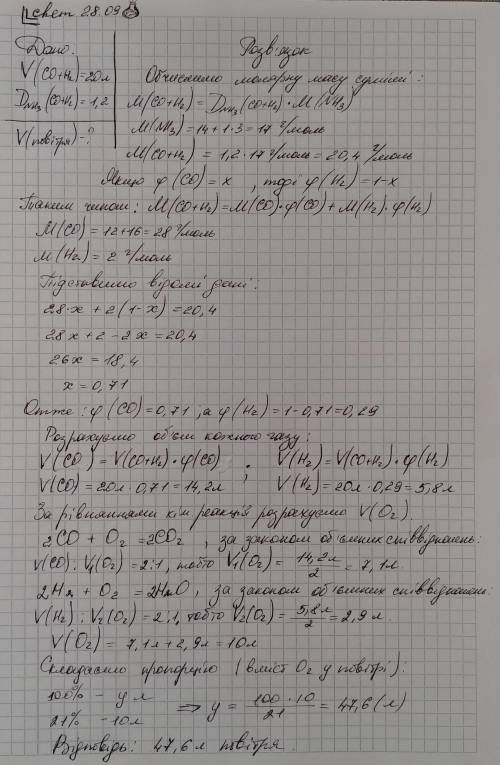 свет 28.09
Дано:
V(CO+H₂)=20л
D_NH₃(CO+H₂)=1,2
V(повітря)-?
Розв'язок
Обчислимо молярну масу суміші:
M(CO+H₂)=D_NH₃(CO+H₂)·M(NH₃)
M(NH₃)=14+1·3=17 г/моль
M(CO+H₂) = 1,2·17 г/моль=20,4 г/моль
Якщо φ(CO)=x , тоді φ(H₂)=1-x
Таким чином: M(CO+H₂)=M(CO)·φ(CO)+M(H₂)·φ(H₂)
M(CO)=12+16=28 г/моль
M(H₂)=2 г/моль
Підставимо відомі дані:
28·x+2(1-x)=20,4
28x+2-2x=20,4
26x=18,4
x=0,71
Отже: φ(CO)=0,71 ; а φ(H₂)=1-0,71=0,29
Розрахуємо об'єм кожного газу:
V(CO)=V(CO+H₂)·φ(CO) ; V(H₂)=V(CO+H₂)·φ(H₂)
V(CO)=20л·0,71=14,2л V(H₂)=20л·0,29=5,8л
За рівняннями хім реакція розрахуємо V(O₂).
2CO+O₂=2CO₂ , за законом об'ємних співвідношень:
V(CO):V₁(O₂)=2:1, тобто V₁(O₂)=14,2л/2=7,1л.
2H₂+O₂=2H₂O, за законом об'ємних співвідношень:
V(H₂):V₂(O₂)=2:1, тобто V₂(O₂)=5,8л/2=2,9л.
V(O₂)=7,1л+2,9л=10л
Складаємо пропорцію (вміст O₂ у повітрі):
100% - y л
21% - 10л ⇒ y=100·10/21=47,6(л)
Відповідь: 47,6л повітря.